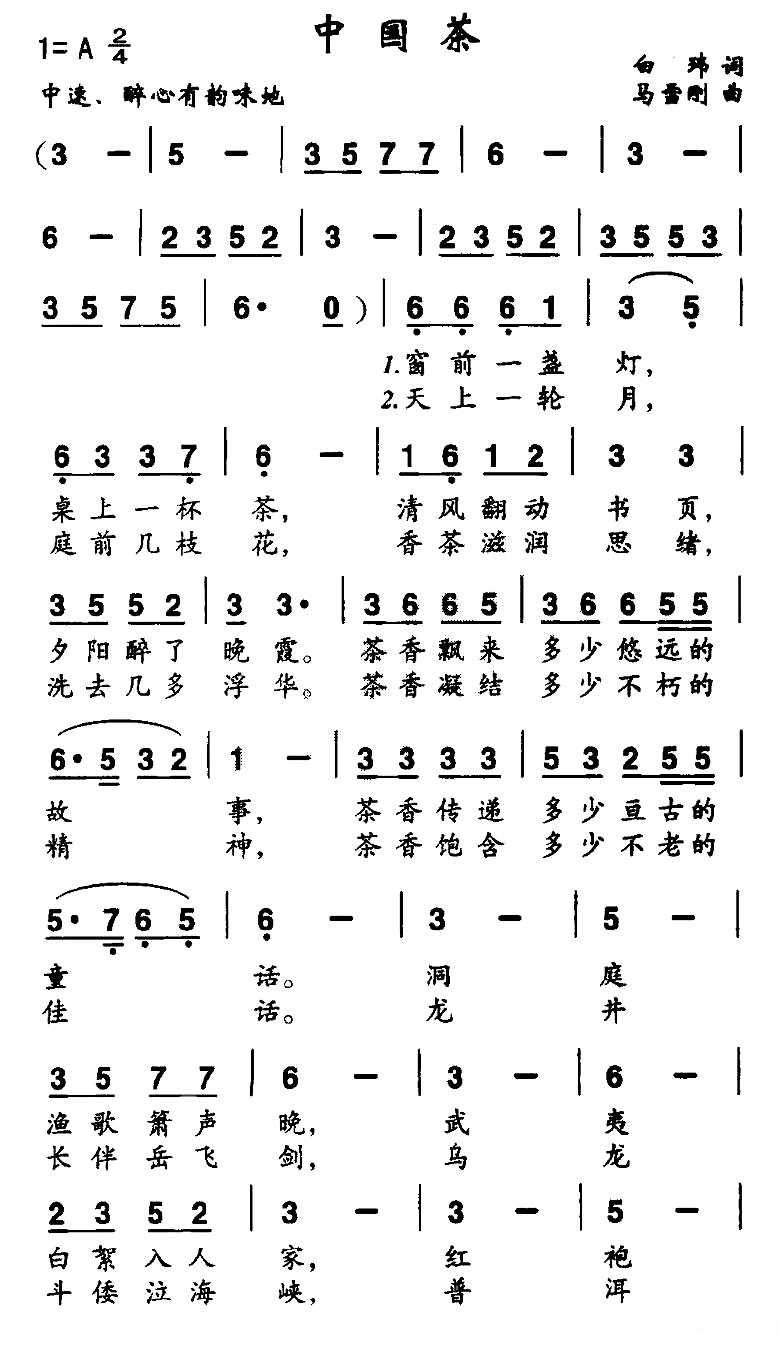 中国茶
1=A 2/4
白 玮 词
中速、醉心有韵味地
马雪刚 曲
(3 - | 5 - | 3 5 7 7 | 6 - | 3 - |
6 - | 2 3 5 2 | 3 - | 2 3 5 2 | 3 5 5 3 |
3 5 7 5 | 6· 0 ) | 6 6 6 1 | 3 5 |
1.窗前一盏灯,
2.天上一轮月,
6 3 3 7 | 6 - | 1 6 1 2 | 3 3 |
桌上一杯茶, 清风翻动书页,
庭前几枝花, 香茶滋润思绪,
3 5 5 2 | 3 3· | 3 6 6 5 | 3 6 6 5 5 |
夕阳醉了晚霞。茶香飘来多少悠远的
洗去几多浮华。茶香凝结多少不朽的
6· 5 3 2 | 1 - | 3 3 3 3 | 5 3 2 5 5 |
故事, 茶香传递多少亘古的
精神, 茶香饱含多少不老的
5· 7 6 5 | 6 - | 3 - | 5 - |
童话。洞庭
佳话。龙井
3 5 7 7 | 6 - | 3 - | 6 - |
渔歌箫声晚, 武夷
长伴岳飞剑, 乌龙
2 3 5 2 | 3 - | 3 - | 5 - |
白絮入人家, 红袍
斗倭泣海峡, 普洱